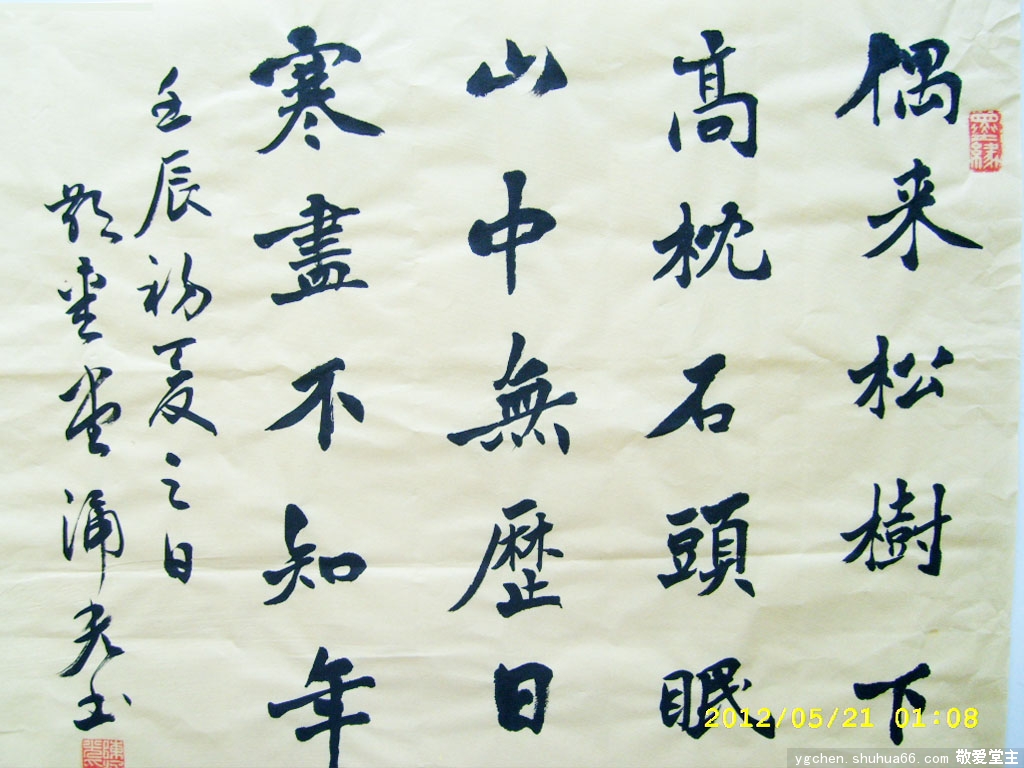 偶来松樹下
高枕石頭眠
山中無歷日
寒盡不知年
壬辰初夏之日
敬爱堂涌光书
2012/05/21 01:08
ygchen.shuhua66.com 敬爱堂主